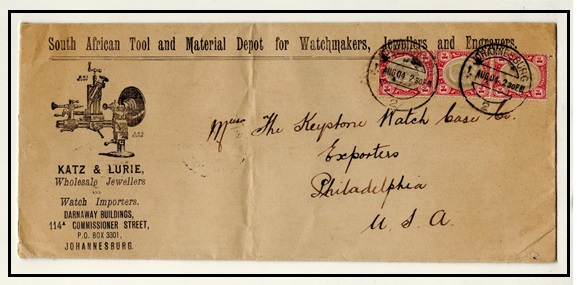 South African Tool and Material Depot for Watchmakers, Jewellers and Engravers.
JOHANNESBURG
AUG 04
2 30 PM
2
AUG 04
2 30 PM
2
KATZ & LURIE,
Wholesale Jewellers
AND
Watch Importers.
DARNAWAY BUILDINGS,
114A COMMISSIONER STREET,
P.O. BOX 3301,
JOHANNESBURG.
Messrs The Keystone Watch Case Co.
Exporters
Philadelphia
U. S. A.